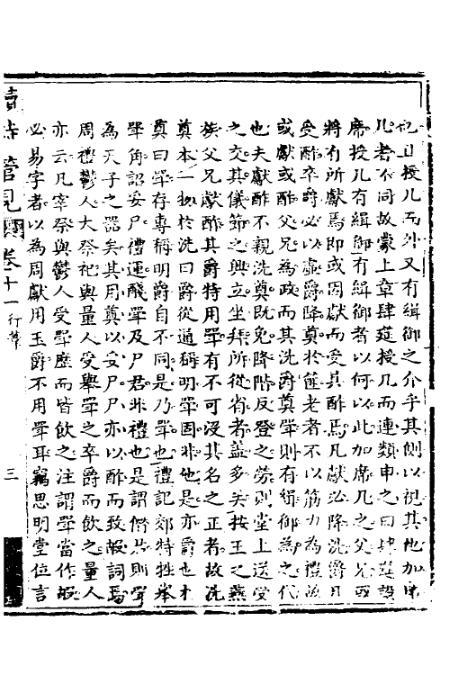 也且授几而外又有緝御之介乎其側以視其他加席
几者不同故蒙上章肆筵授几而連類申之曰肆筵設
席授几有緝御有緝御者以何以此加席几之父兄而
將有所獻焉即或因獻而受其酢焉凡獻必降洗爵且
受酢卒爵必以虛爵降奠於篚老者不以筋力為禮故
或獻或酢父兄為政而其洗爵奠斝則有緝御為之代
也夫獻酢不親洗奠既免降階反登之勞則堂上送受
之交其儀節之興立坐拜所從省者蓋多矣按王之燕
族父兄獻酢其爵特用斝有不可沒其名之正者故洗
奠本一物於洗曰爵從通稱明斝固非他是亦爵也於
奠曰斝存專稱明爵自不同是乃斝也禮記郊特牲舉
斝角詔妥尸禮運醆斝及尸君非禮也是謂僭君則斝
為天子之器矣其用奠以妥尸尸亦以酢而致嘏詞焉
周禮鬱人大祭祀與量人受舉斝之卒爵而飲之量人
亦云凡宰祭與鬱人受斝歷而皆飲之注謂斝當作嘏
必易字者以為周獻用玉爵不用斝耳竊思明堂位言
讀詩管見 卷十一 行葦
三